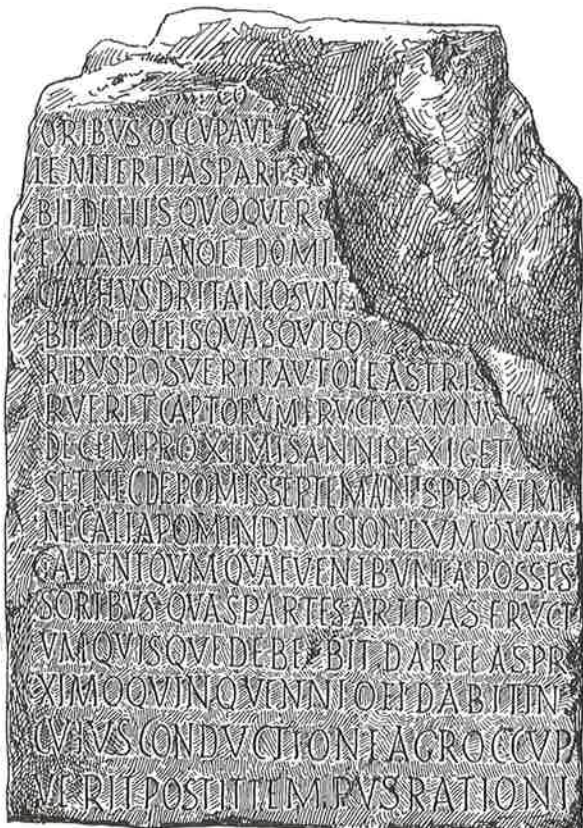 CO
ORIBVS OCCVPAVE
LENT TERTIAS PARTE
BIT DE HIS QVOQVE R
EX LAMIANO ET DOMI
CTA THVSDRITANO SVN
BIT DE OLEIS QVAS QVISQ
RIBVS POSVERIT AVT OLEASTRIS
RVERIT CAPTORVM FRVCTVVM NV
DECEM PROXIMIS ANNIS EXIGET
SET NEC DE POMIS SEPTEM ANIS PROXIMI
NEC ALIA POM IN DIVISIONE VMQVAM
CADENT QVM QVAE VENIBVNT A POSSES
SORIBVS QVAS PARTES ARIDAS FRVCT
VM QVISQVE DEBEBIT DARE EAS PR
XIMO QVINQVENNIO EI DABIT IN
CVIVS CONDVCTIONE AGR OCCVP
VERIT POST IT TEMPVS RATIONI